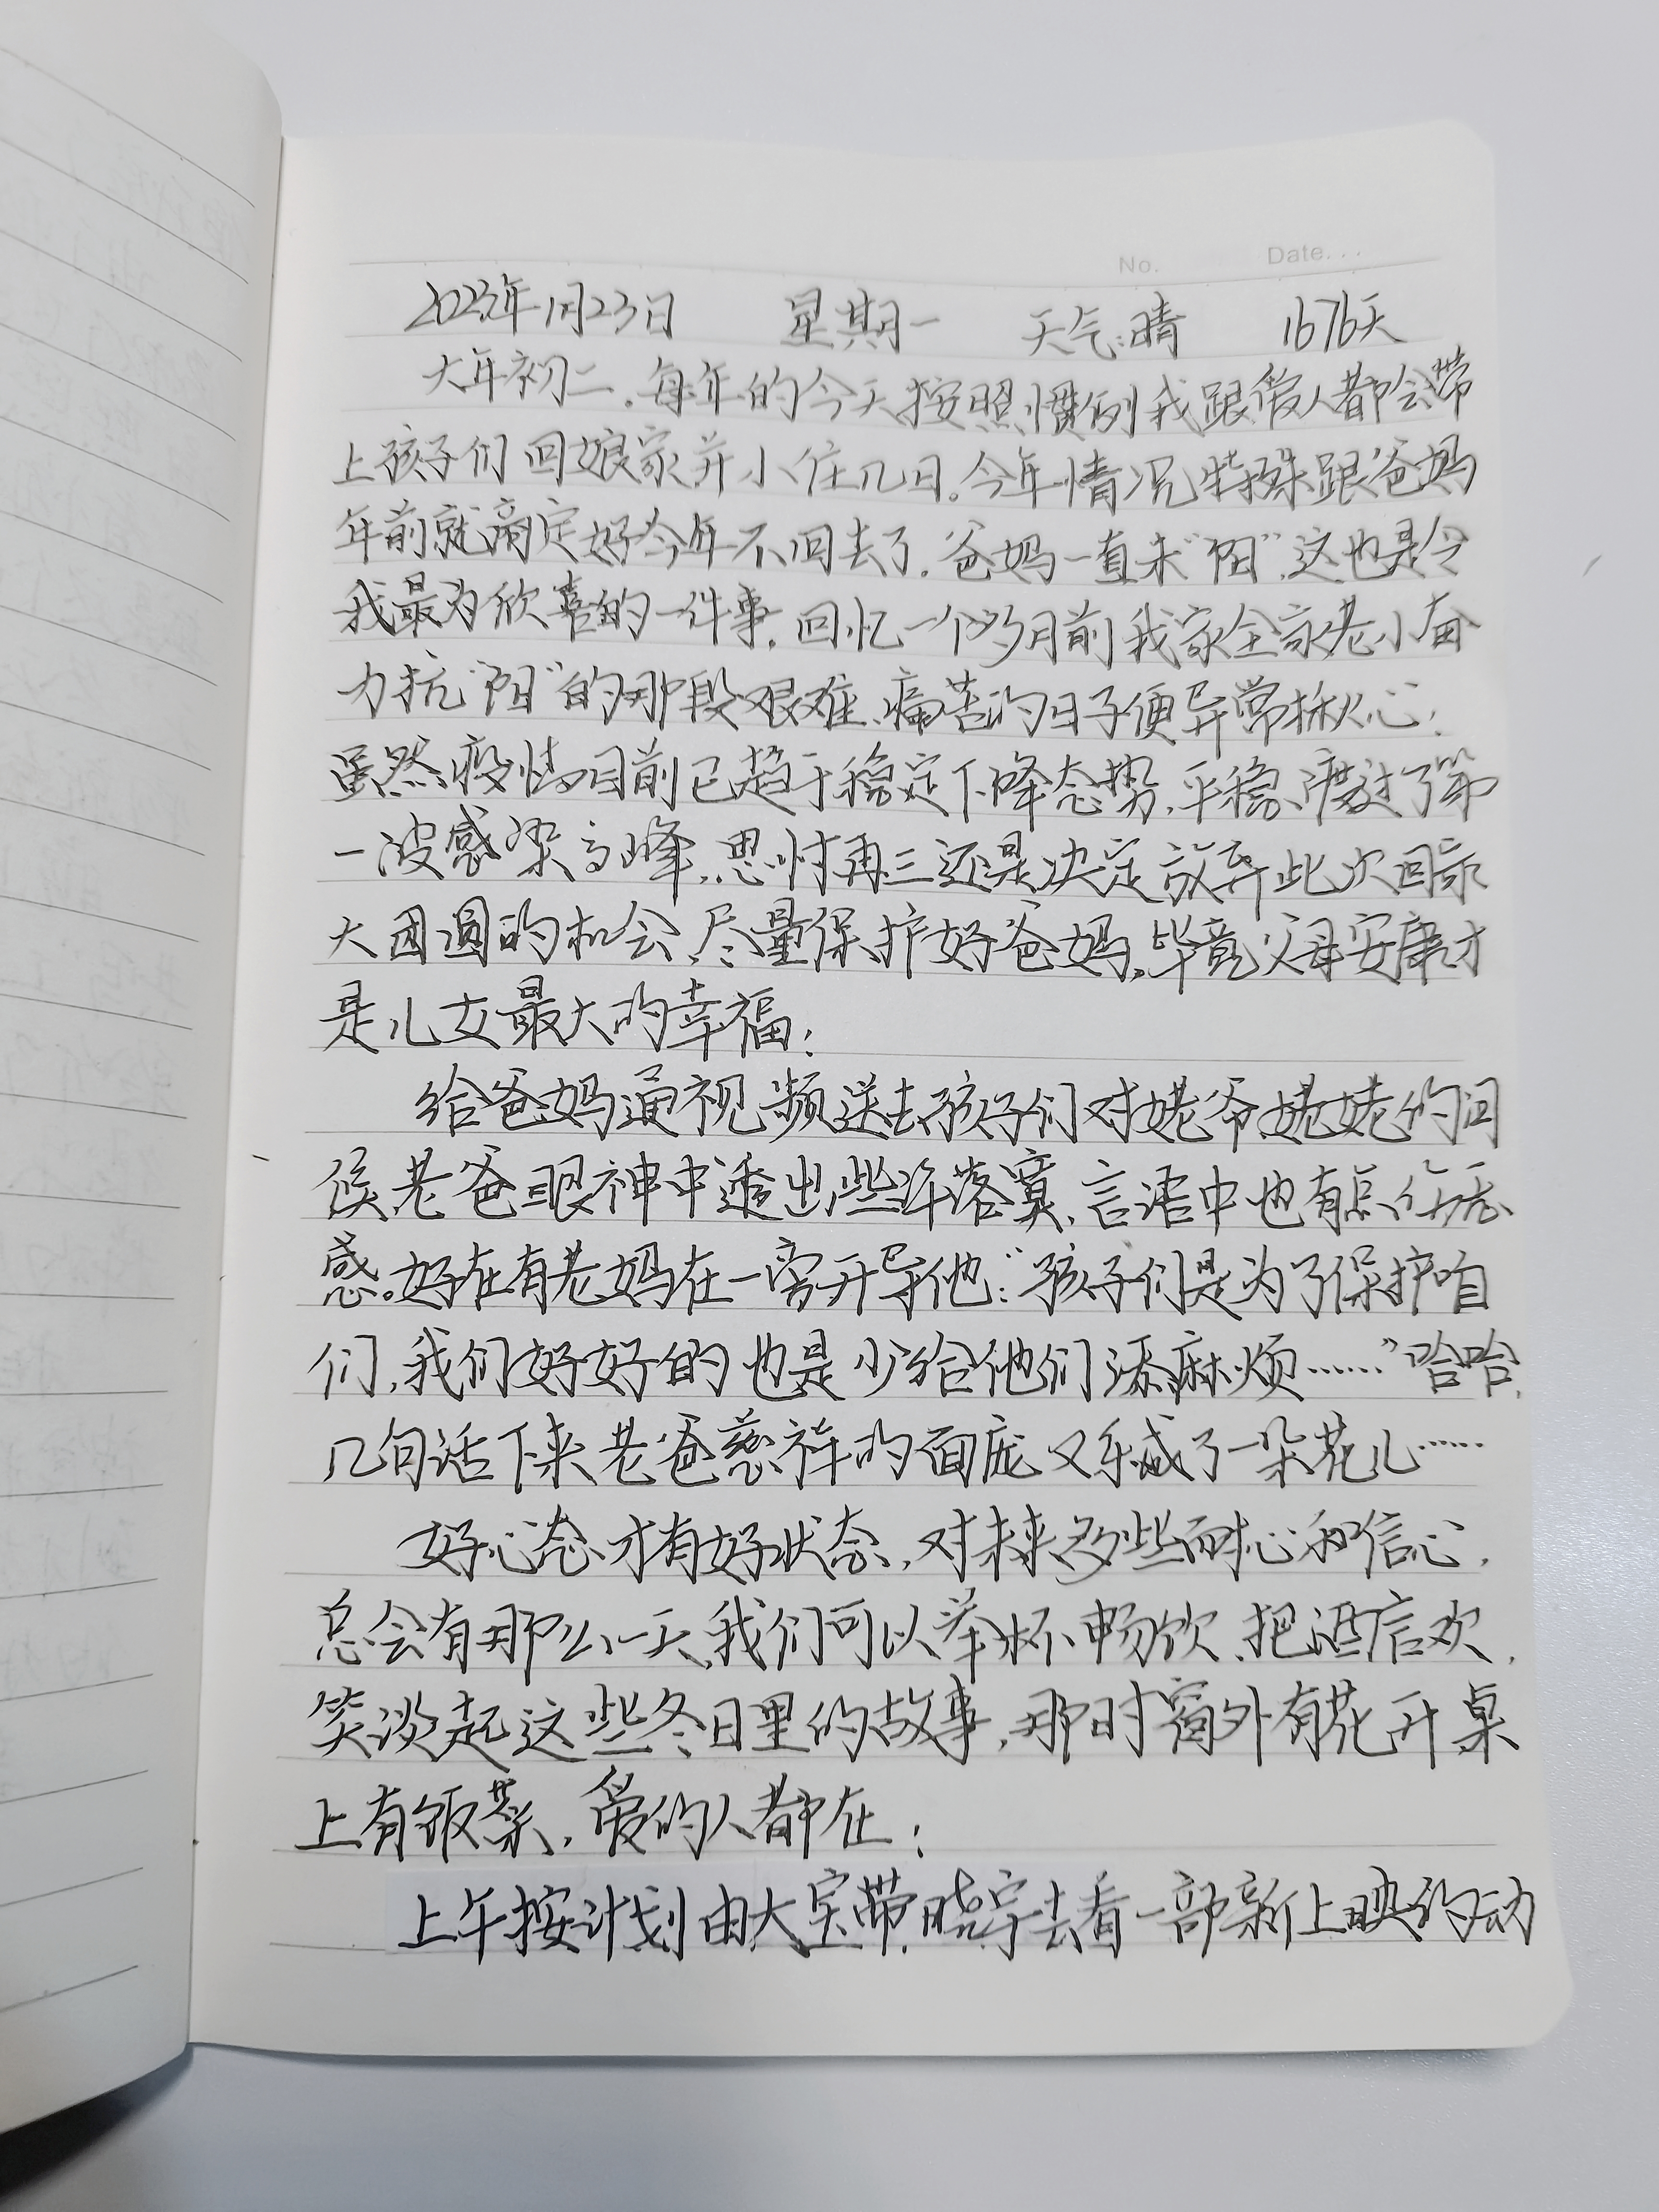 No. Date...
2023年1月23日 星期一 天气:晴 1676天
大年初二，每年的今天按照惯例我跟爱人都会带
上孩子们回娘家并小住几日。今年情况特殊跟爸妈
年前就商定好今年不回去了。爸妈一直未“阳”，这也是令
我最为欣喜的一件事。回忆一个多月前我家全家老小奋
力抗“阳”的那段艰难、痛苦的日子便异常揪心！
虽然疫情目前已趋于稳定下降态势，平稳、渡过了第
一波感染高峰，思忖再三还是决定放弃此次回家
大团圆的机会，尽量保护好爸妈，毕竟父母安康才
是儿女最大的幸福！
给爸妈通视频送去孩子们对姥爷姥姥的问
候，老爸眼神中透出些许落寞，言语中也有点伤
感。好在有老妈在一旁开导他：“孩子们是为了保护咱
们，我们好好的也是少给他们添麻烦……”哈哈，
几句话下来老爸慈祥的面庞又乐成了一朵花儿……
好心态才有好状态，对未来多些耐心和信心，
总会有那么一天，我们可以举杯畅饮、把酒言欢，
笑谈起这些冬日里的故事，那时窗外有花开桌
上有饭菜，爱的人都在！
上午按计划由大宝带晓宇去看一部新上映的动